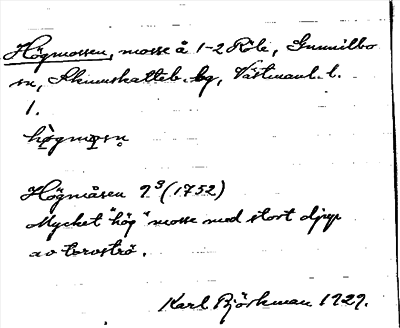 Högmossen, mosse å 1-2 Röle, Gunnilbo
sn, Skinnskatteb. bg, Västmanl. l.
1.
högmosn
Högmåsen 9³ (1752)
Mycket "hög" mosse med stort djup
av torvströ.
Karl Björkman 1929.